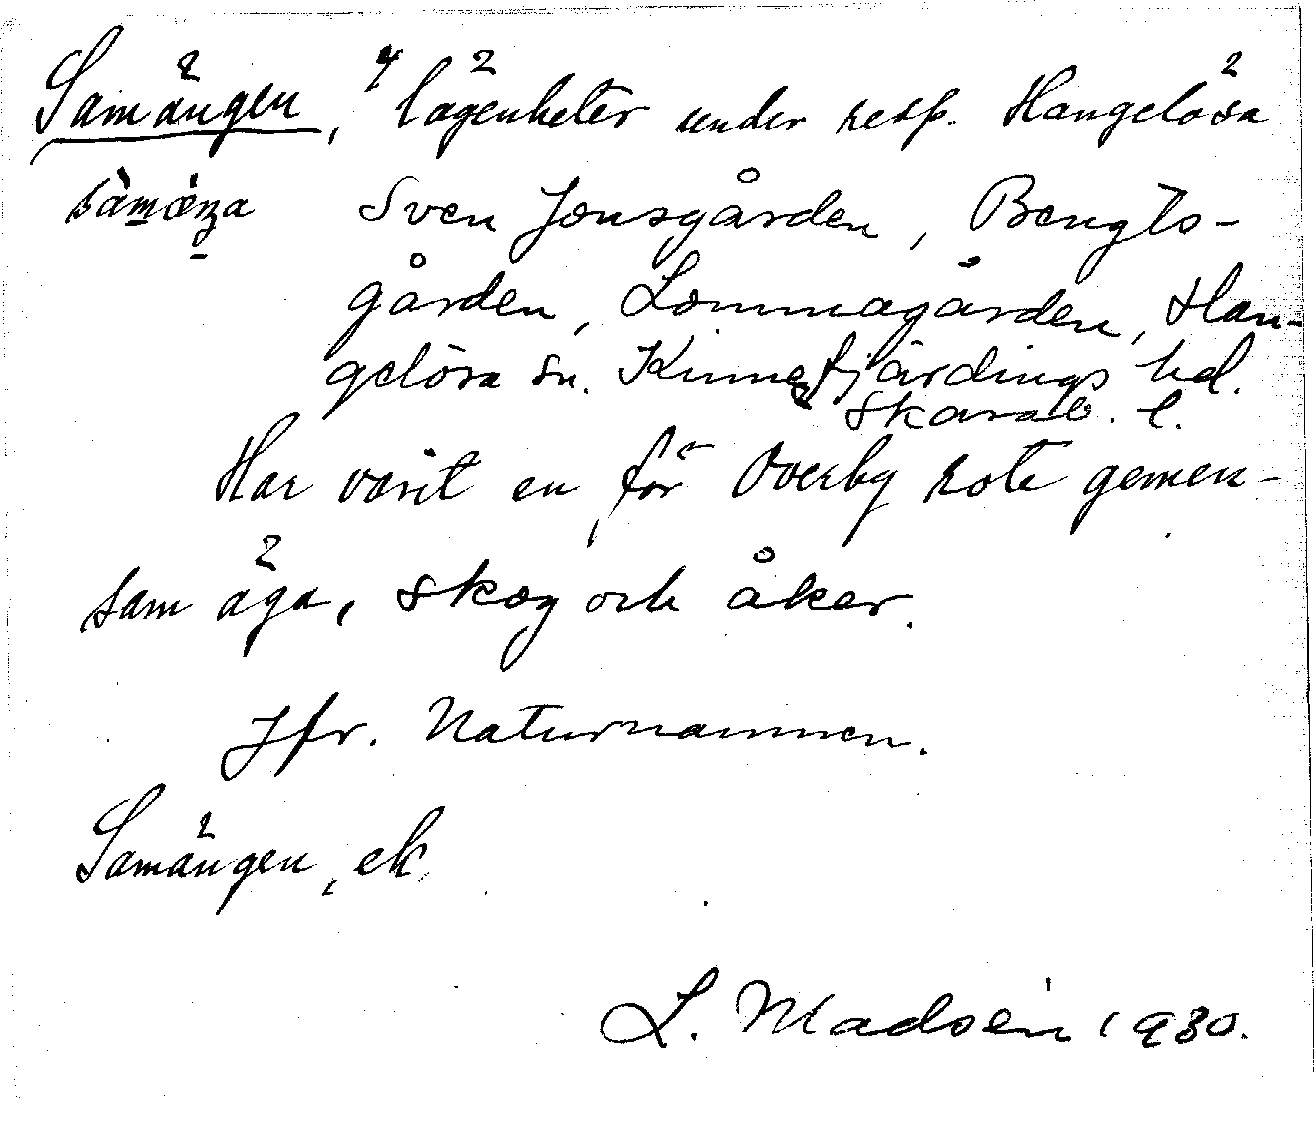 Samängen, 4 lägenheter under resp. Hangelösa
sàmæ̀ŋa Sven Jonsgården, Bengts-
gården, Lommagården, Han-
gelösa sn. Kinnefjärdings hd.
Skarab. l.
Har varit en för Överby rote gemen-
sam äga, skog och åker.
Jfr. Naturnamnen.
Samängen, ek
L. Madsén 1930.